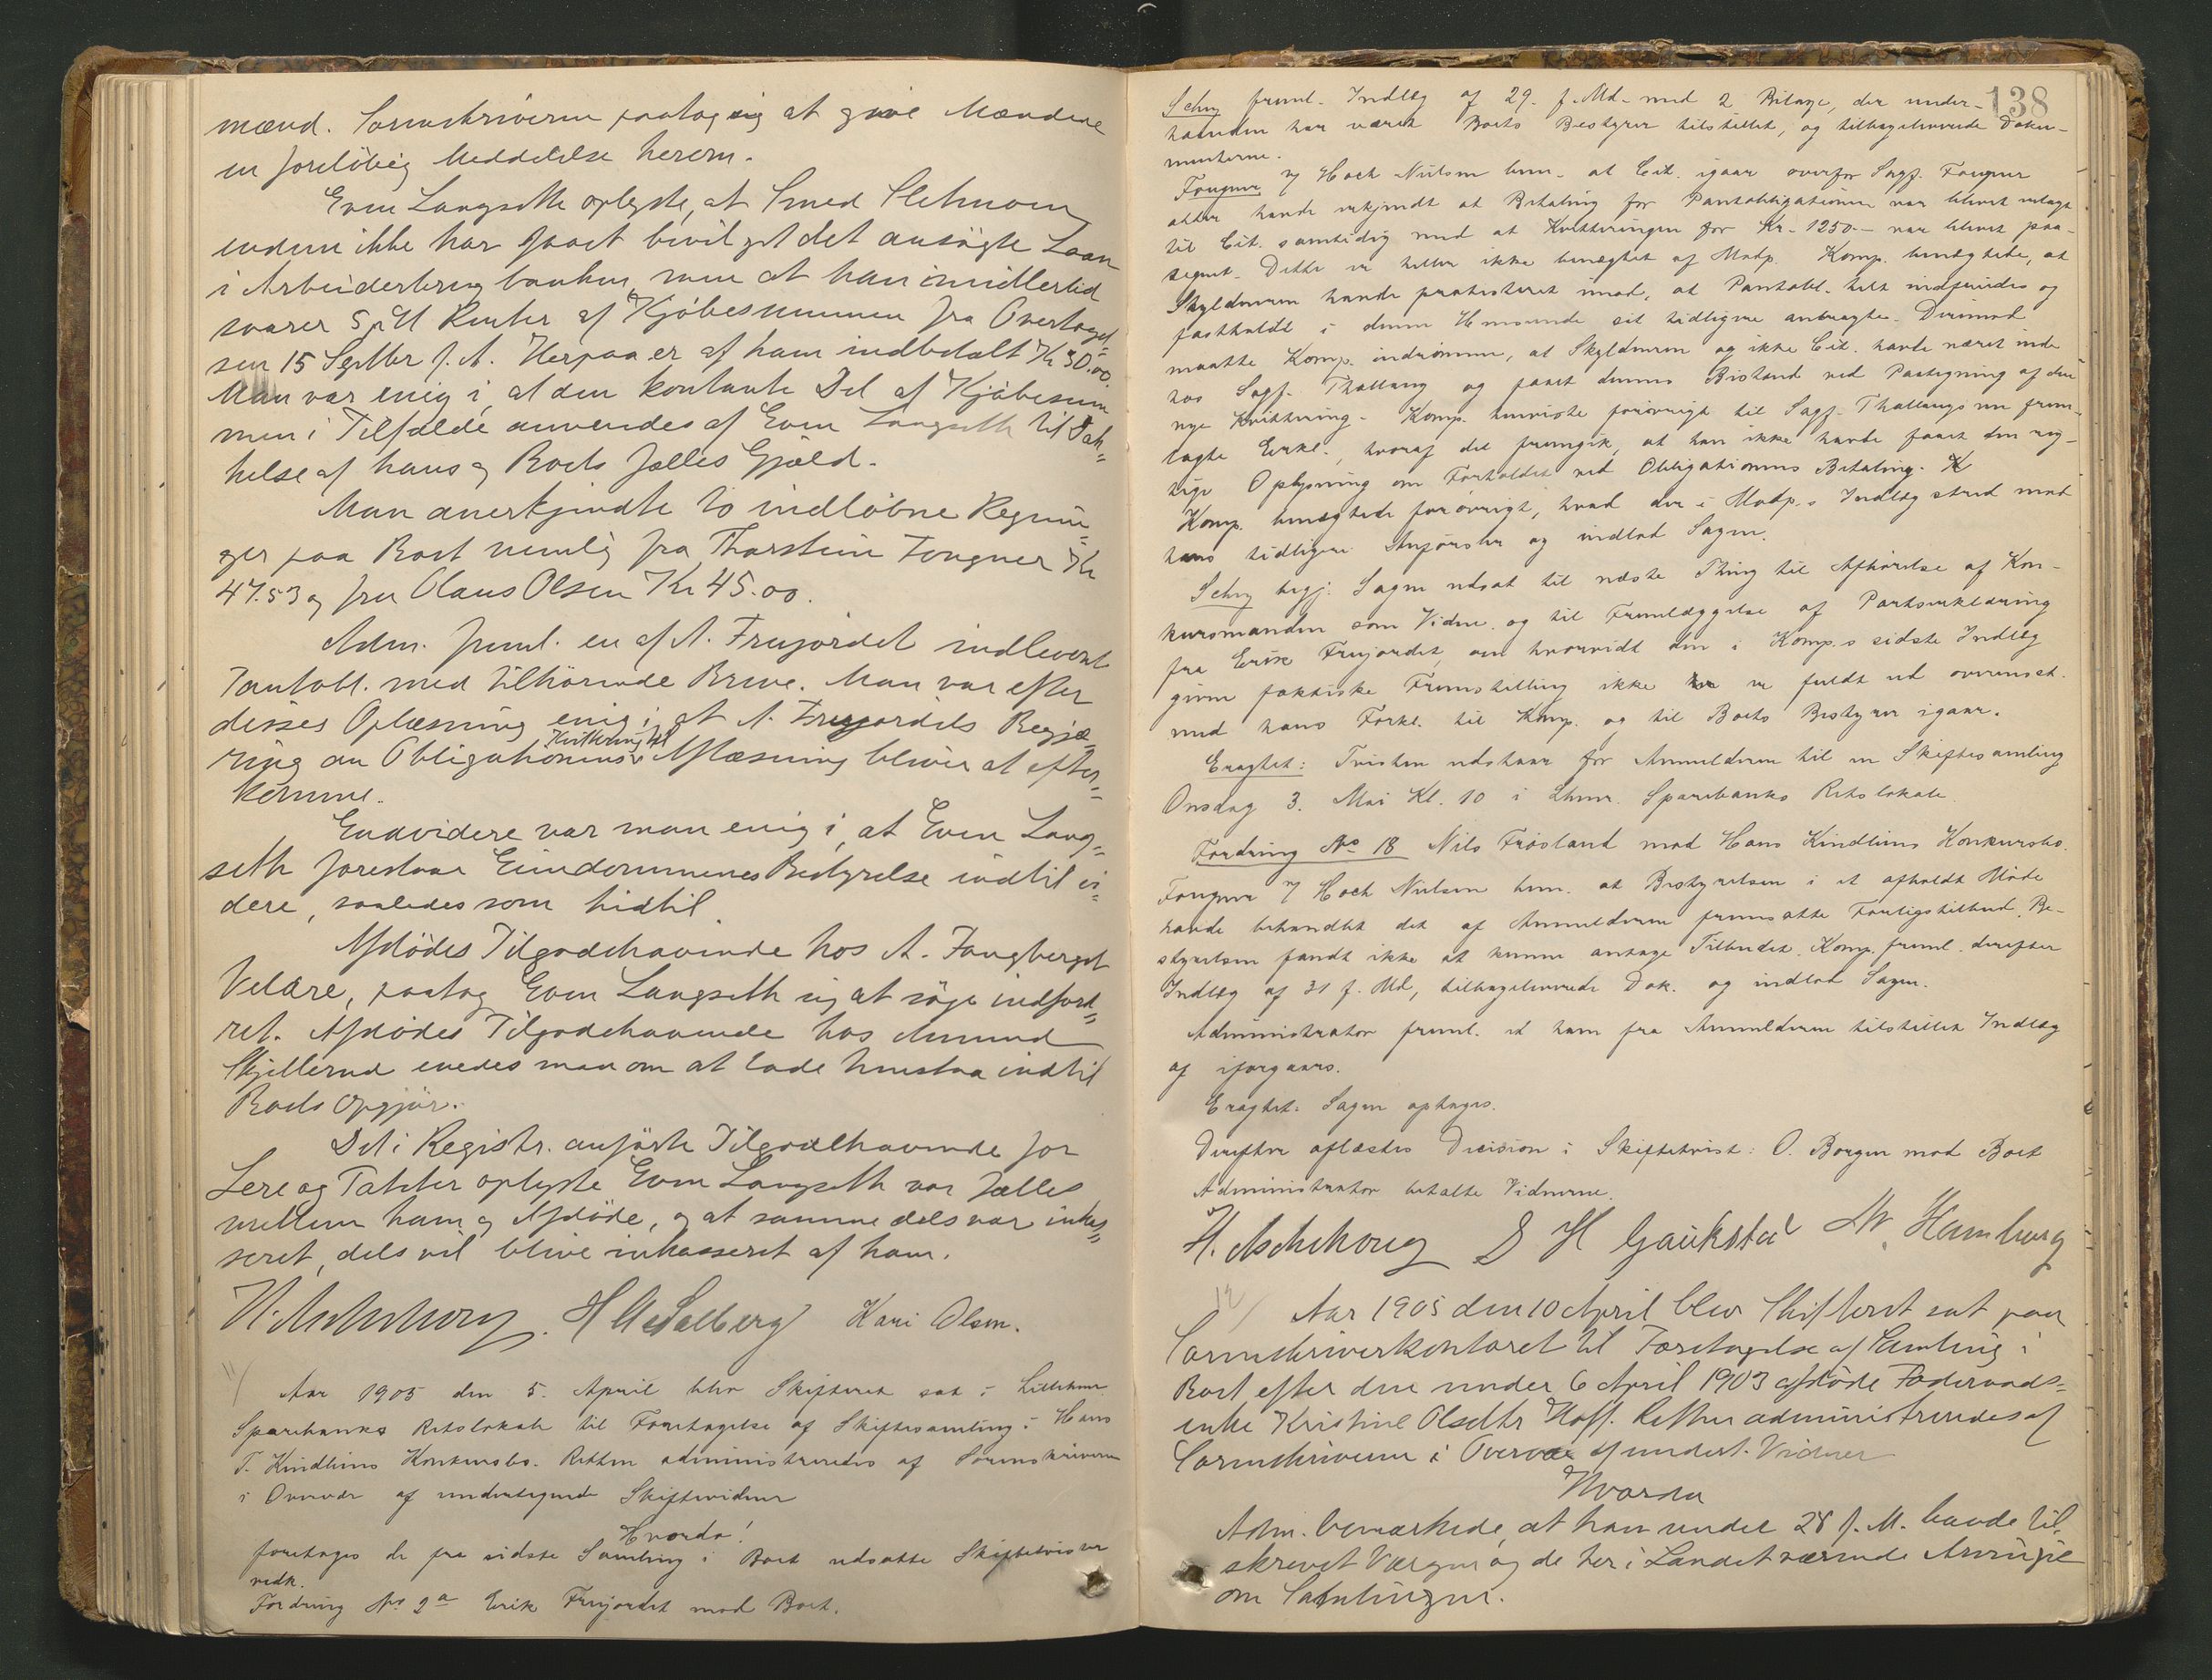 mænd. Sorenskriveren paatog sig at give Mændene
en foreløbig Meddelelse herom.
Even Langseth oplyste, at Smed Sletmoen
endnu ikke har faaet bevilget det ansøgte Laan
i Arbeiderbrugbanken, men at han imidlertid
svarer 5 pCt Renter af Kjøbesummen fra Overtagel-
sen 15 Septbr f. A. Herpaa er af ham indbetalt Kr 30.00.
Man var enig i, at den kontante Del af Kjøbesum
men i Tilfælde anvendes af Even Langseth til Dæk-
kelse af hans og Boets fælles Gjæld.
Man anerkjendte to indløbne Regnin-
ger paa Boet nemlig fra Thorstein Fougner Kr
47.53 og fra Olaus Olsen Kr 45.00.
Adm. freml. en af A. Frujordet indleveret
Pantobl. med tilhørende Breve. Man var efter
disses Oplæsning enig i, at A. Frujordets Begjæ-
ring om Obligationens Kvittering til Aflæsning bliver at efter-
komme.
Endvidere var man enig i, at Even Lang-
seth forestaar Eiendommenes Bestyrelse indtil vi-
dere, saaledes som hidtil.
Afdødes Tilgodehavende hos A. Fangberget
Velære, paatog Even Langseth sig at søge indford-
ret. Afdødes Tilgodehavende hos Amund
Skjellerud enedes man om at lade henstaa indtil
Boets Opgjør.
Det i Registr. anførte Tilgodehavende for
Lere og Tatter oplyste Even Langseth var fælles
mellem ham og Afdøde, og at samme dels var inkas-
seret, dels vil blive inkasseret af ham.
H. Aschehoug. H A Solberg Kari Olsen.
11/ Aar 1905 den 5. April blev Skifteret sat i Lillehmr
Sparebanks Retslokale til Foretagelse af Skiftesamling i Hans
T. Kindlins Konkursbo. Retten administreredes af Sorenskriveren
i Overvær af undertegnede Skiftevidner
Hvorda!
foretoges de fra sidste Samling i Boet udsatte Skiftetvister
vedk.
Fordring No 2a Erik Frujordet mod Boet.
138
Schry freml. Indlæg af 29. f. Md. med 2 Bilage, der under-
haanden har været Boets Bestyrer tilstillet, og tilbageleverede Doku-
menterne.
Fougner v/ Hoch Nielsen bem. at Cit. igaar overfor Sagf. Fougner
atter havde erkjendt at Betaling for Pantobligationen var blevet erlagt
til Cit. samtidig med at Kvitteringen for Kr. 1250.- var blevet paa-
tegnet. Dette er heller ikke benegtet af Modp. Komp. benegtede, at
Skyldneren havde protesteret imod, at Pantobl. helt indfriedes og
fastholdt i denne Henseende sit tidligere anbragte. Derimod
maatte Komp. indrømme, at Skyldneren og ikke Cit. havde været inde
hos Sagf. Thallaug og faaet dennes Bistand ved Paategning af den
nye Kvittering. Komp. henviste forøvrigt til Sagf. Thallaugs nu frem-
lagte Erkl., hvoraf det fremgik, at han ikke havde faaet den rig-
tige Oplysning om Forholdet ved Obligationens Betaling.
Komp. benegtede forøvrigt, hvad der i Modp.s Indlæg stred mod
hans tidligere Anførsler og indlod Sagen.
Schry begj. Sagen udsat til næste Thing til Afhørelse af Kon-
kursmanden som Vidne og til Fremlæggelse af Partserklæring
fra Erik Frujordet, om hvorvidt den i Komp.s sidste Indlæg
givne faktiske Fremstilling ikke er fuldt ud overensst.
med hans Forkl. til Komp. og til Boets Bestyrer igaar.
Eragtet: Tvisten udstaar for Anmelderen til en Skiftesamling
Onsdag 3. Mai Kl. 10 i Lhmr. Sparebanks Retslokale
Fordring No 18 Nils Frøsland mod Hans Kindlins Konkursbo.
Fougner v/ Hoch Nielsen bem. at Bestyrelsen i et afholdt Møde
havde behandlet det af Anmelderen fremsatte Forligstilbud. Be-
styrelsen fandt ikke at kunne antage Tilbudet. Komp. freml. derefter
Indlæg af 31 f. Md, tilbageleverede Dok. og indlod Sagen.
Administrator freml. et ham fra Anmelderen tilstillet Indlæg
af iforgaars.
Eragtet: Sagen optages.
Derefter aflæstes Decision i Skiftetvist: O. Borgen mod Boet
Administrator betalte Vidnerne.
H. Aschehoug S H Gaukstad M. Hamburg
12/ Aar 1905 den 10 April blev Skifteret sat paa
Sorenskriverkontoret til Foretagelse af Samling i
Boet efter den under 6 April 1903 afdøde Føderaads-
enke Kristine Olsdtr Hoff. Retten administreredes af
Sorenskriveren i Overvær af undert. Vidner
Hvorda
Adm. bemærkede, at han under 28 f. M. havde til-
skrevet Værgen og de her i Landet værende Arvinger
om Samlingen.